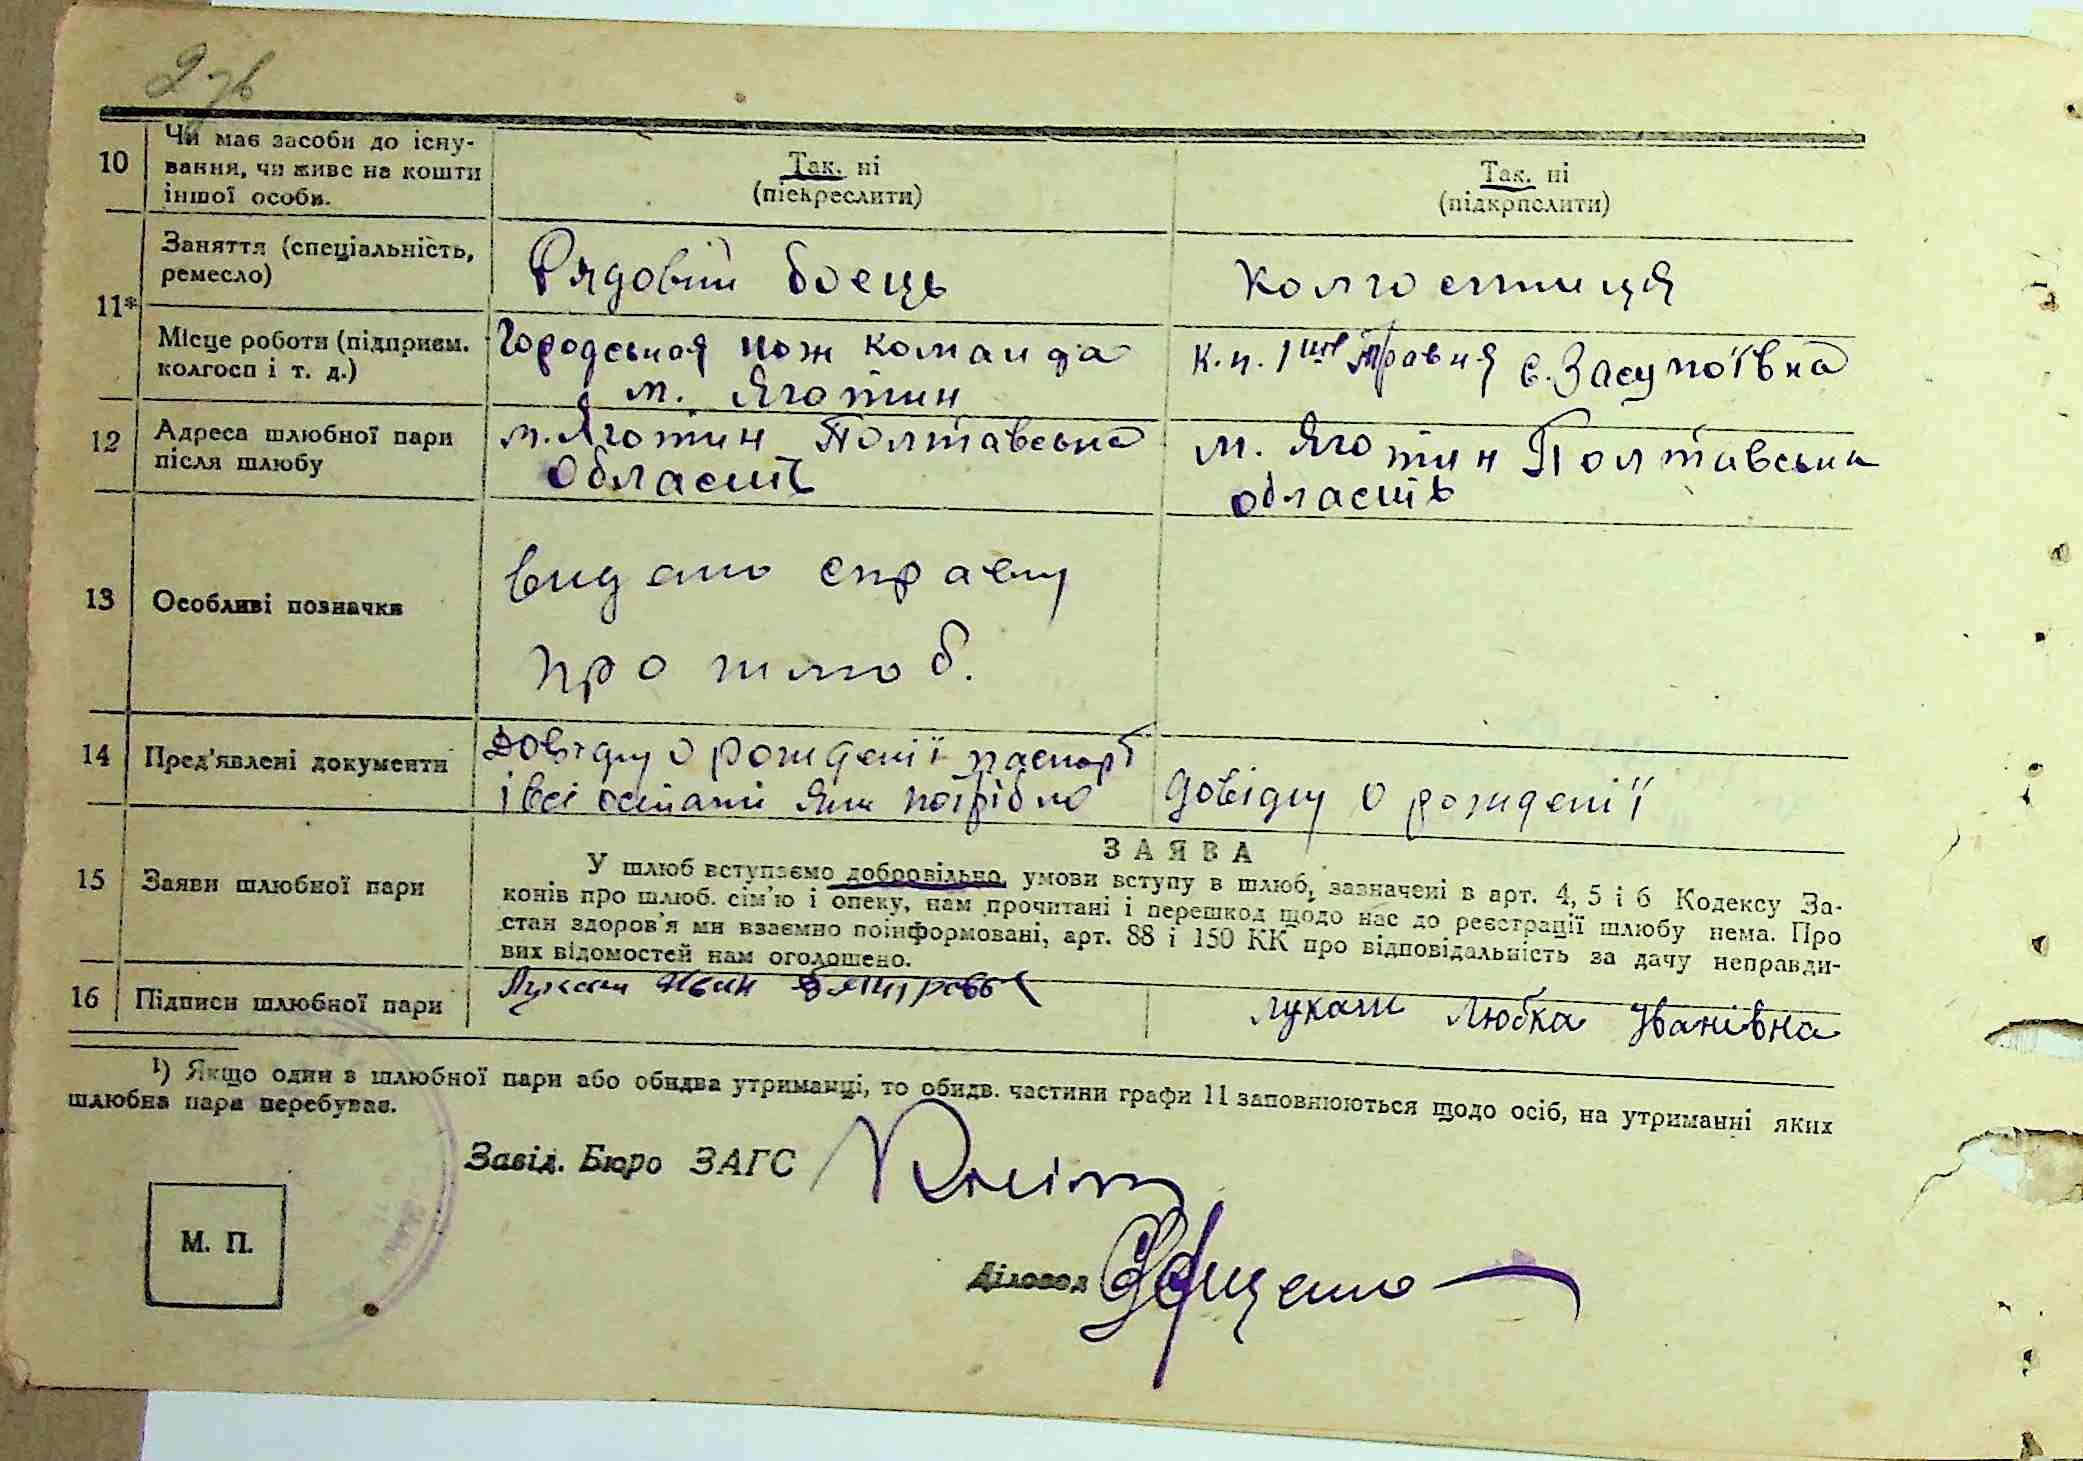 2 зв
10 Чи має засоби до існу-
вання, чи живе на кошти
іншої особи.
Так. ні
(піекреслити)
Так. ні
(підкрпслити)
11*
Заняття (спеціальність,
ремесло)
Рядовій боєць
колгоспниця
Місце роботи (підприєм.
колгосп і т. д.)
Городськая пож команда
м. Яготин
к.п. 1ше Травня с. Засупоївна
12 Адреса шлюбної пари
після шлюбу
м. Яготин Полтавська
Область
м. Яготин Полтавська
область
13 Особливі позначки
видано справку
про шлюб.
14 Пред'явлені документи
Довідку о рождениї паспорт
і всі остані які потрібно
довідку о рожденії
15 Заяви шлюбної пари
ЗАЯВА
У шлюб вступаємо добровільно, умови вступу в шлюб, зазначені в арт. 4, 5 і 6 Кодексу За-
конів про шлюб. сім'ю і опеку, нам прочитані і перешкод щодо нас до реєстрації шлюбу нема. Про
стан здоров'я ми взаємно поінформовані, арт. 88 і 150 КК про відповідальність за дачу неправди-
вих відомостей нам оголошено.
16 Підписи шлюбної пари
Лукаш Иван
Лукаш Любка Іванівна
¹) Якщо один в шлюбної пари або обидва утриманці, то обидв. частини графи 11 заповнюються щодо осіб, на утриманні яких
шлюбна пара перебуває.
Завід. Бюро ЗАГС
М. П.
Діловод